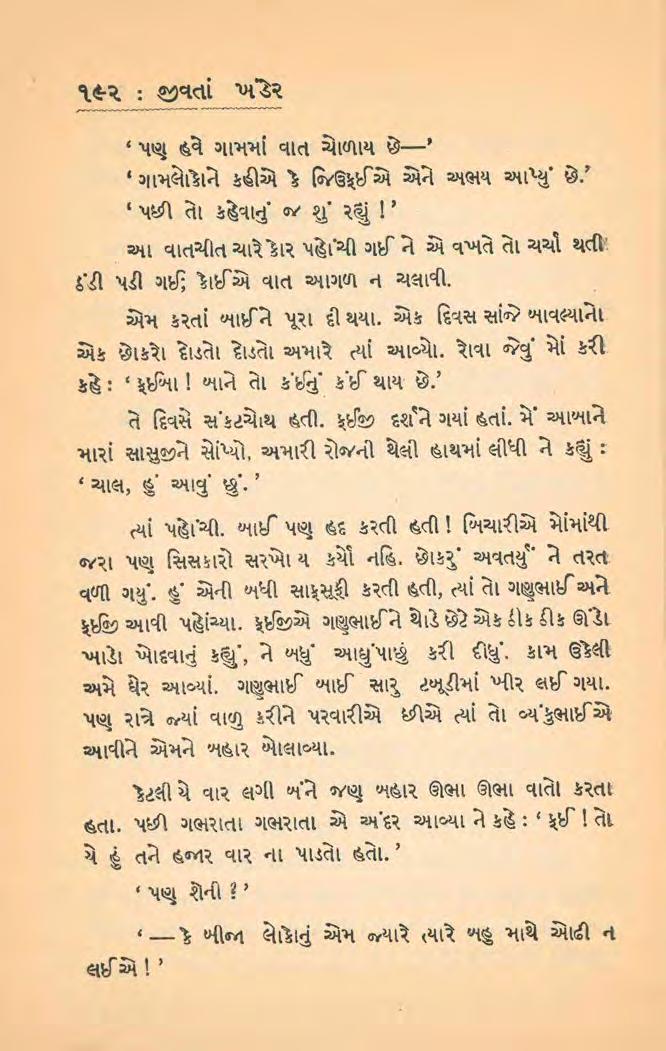 ૧૯૨ : જીવતાં ખંડેર
‘ પણ હવે ગામમાં વાત ચોળાય છે—’
‘ ગામલોકોને કહીએ કે જિઉફઈએ એને અભય આપ્યું છે.’
‘ પછી તો કહેવાનું જ શું રહ્યું ! ’
આ વાતચીત ચારેકોર પહોંચી ગઈ ને એ વખતે તો ચર્ચા થતી
ઠંડી પડી ગઈ; કોઈએ વાત આગળ ન ચલાવી.
એમ કરતાં બાઈને પૂરા દી થયા. એક દિવસ સાંજે બાવલ્યાનો
એક છોકરો દોડતો દોડતો અમારે ત્યાં આવ્યો. રોવા જેવું મોં કરી
કહે : ‘ ફઈબા ! બાને તો કંઈનું કંઈ થાય છે.’
તે દિવસે સંકટચોથ હતી. ફઈજી દર્શને ગયાં હતાં. મેં આબાને
મારાં સાસુજીને સોંપ્યો, અમારી રોજની થેલી હાથમાં લીધી ને કહ્યું :
‘ ચાલ, હું આવું છું. ’
ત્યાં પહોંચી. બાઈ પણ હદ કરતી હતી ! બિચારીએ મોંમાંથી
જરા પણ સિસકારો સરખો ય કર્યો નહિ. છોકરું અવતર્યું ને તરત
વળી ગયું. હું એની બધી સાફસૂફી કરતી હતી, ત્યાં તો ગણુભાઈ અને
ફઈજી આવી પહોંચ્યા. ફઈજીએ ગણુભાઈને થોડે છેટે એક ઠીક ઠીક ઊંડો
ખાડો ખોદવાનું કહ્યું, ને બધું આઘુંપાછું કરી દીધું. કામ ઉકેલી
અમે ઘેર આવ્યાં. ગણુભાઈ બાઈ સારુ ટબૂડીમાં ખીર લઈ ગયા.
પણ રાત્રે જ્યાં વાળુ કરીને પરવારીએ છીએ ત્યાં તો વ્યંકુભાઈએ
આવીને એમને બહાર બોલાવ્યા.
કેટલી યે વાર લગી બંને જણ બહાર ઊભા ઊભા વાતો કરતા
હતા. પછી ગભરાતા ગભરાતા એ અંદર આવ્યા ને કહે : ‘ ફઈ ! તો
યે હું તને હજાર વાર ના પાડતો હતો. ’
‘ પણ શેની ? ’
‘ — કે બીજા લોકોનું એમ જ્યારે ત્યારે બહુ માથે ઓઢી ન
લઈએ ! ’